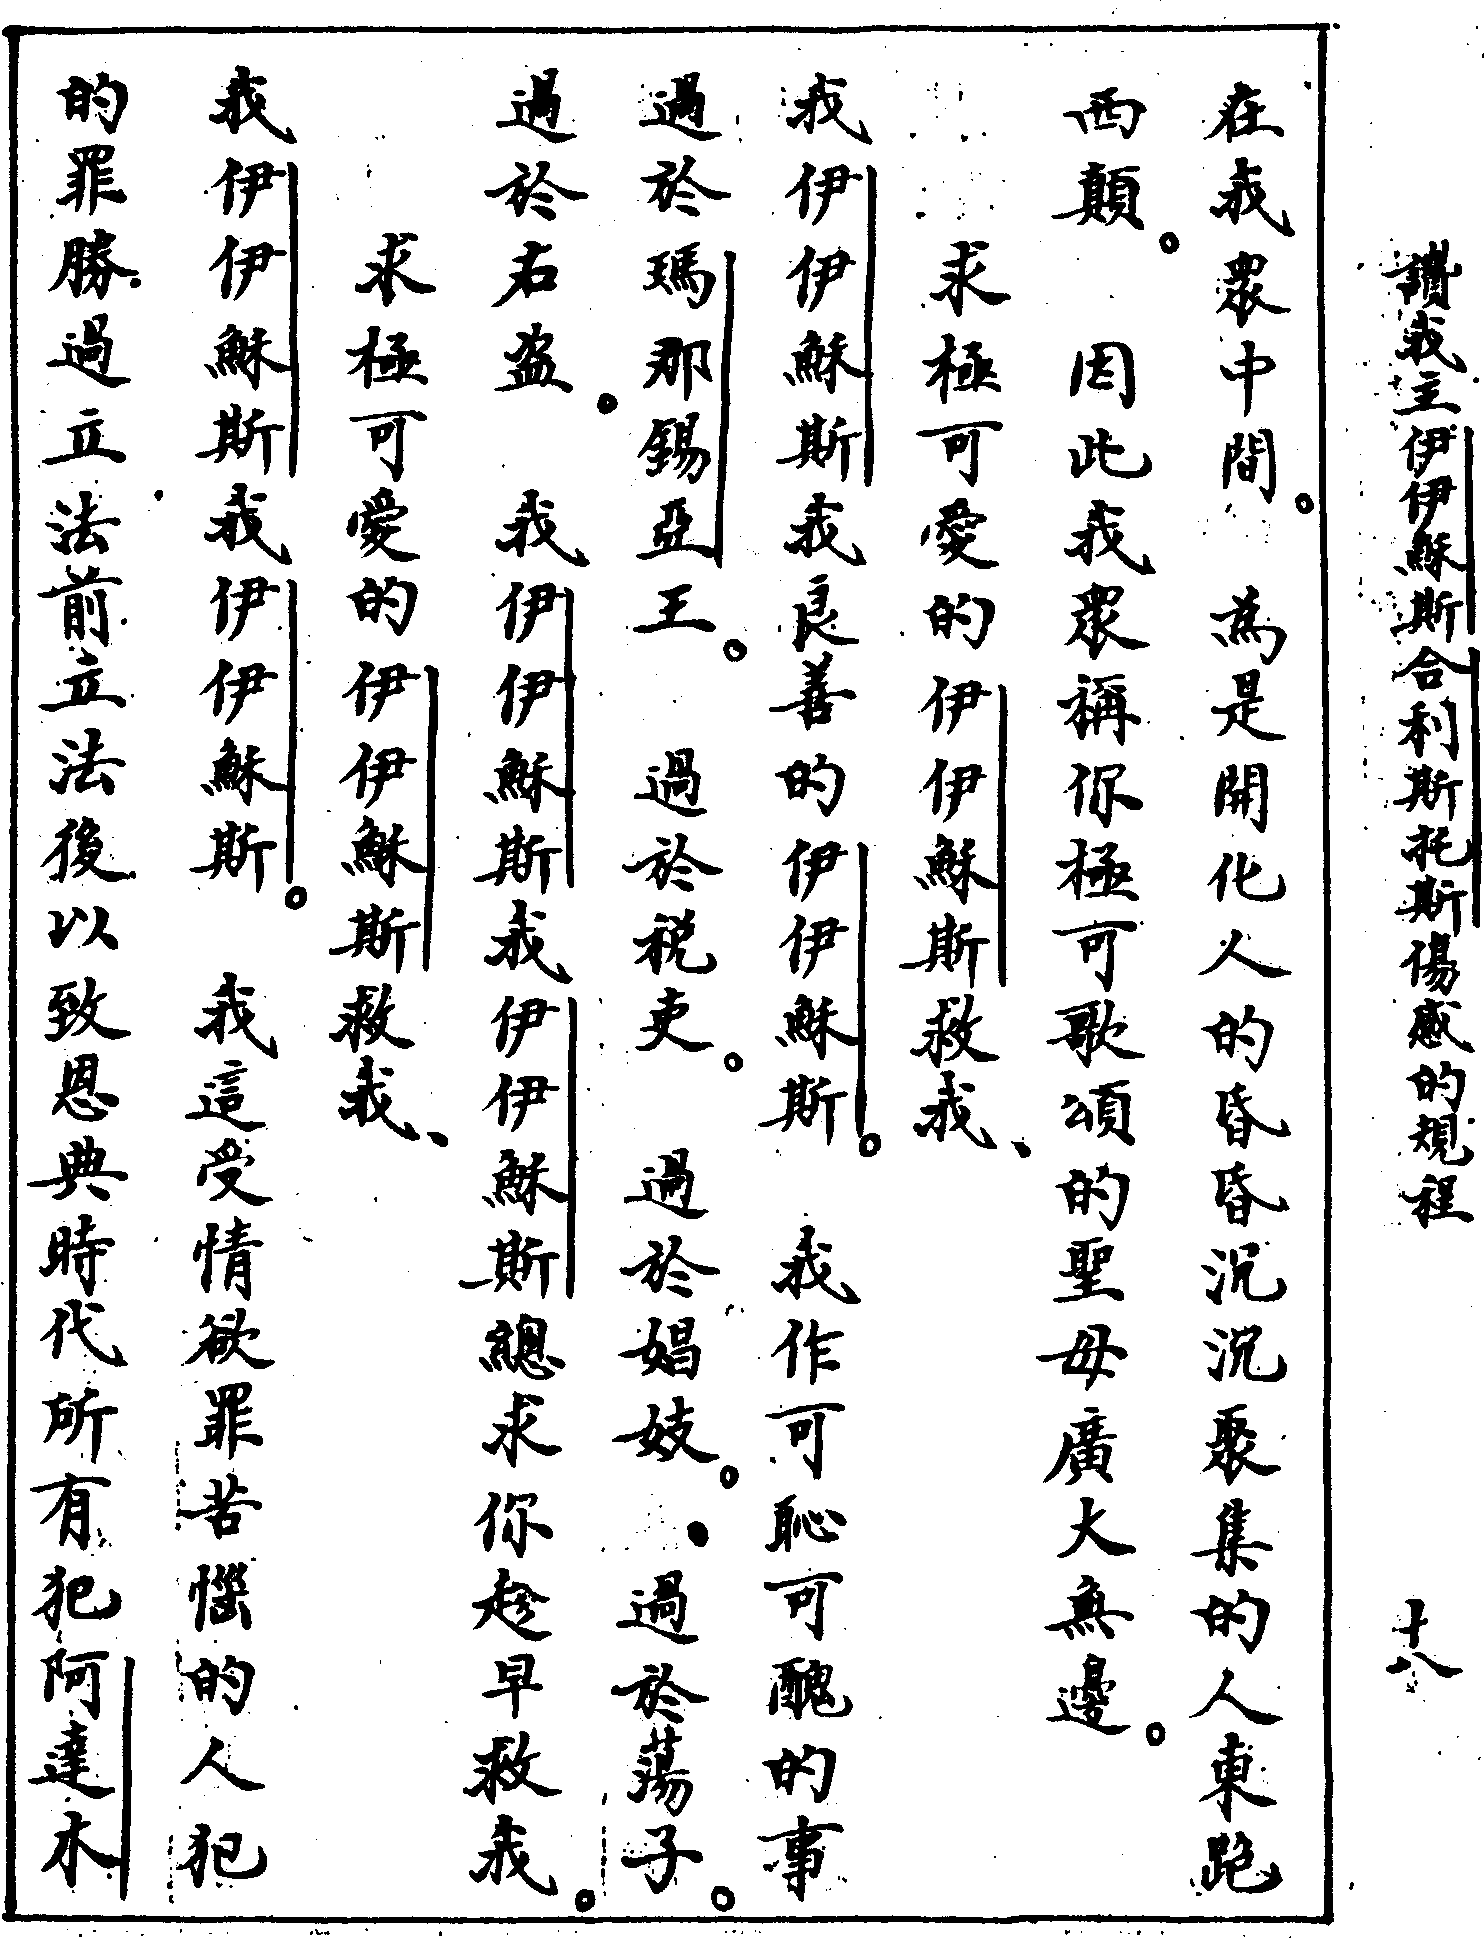 讚我主伊伊穌斯合利斯托斯傷感的規程 十八
在我眾中間。 為是開化人的昏昏沉沉聚集的人東跑
西顛。 因此我眾稱你極可歌頌的聖母廣大無邊。
求極可愛的伊伊穌斯救我、
我伊伊穌斯我良善的伊伊穌斯。 我作可恥可醜的事
過於瑪那錫亞王。 過於税吏。 過於娼妓。 過於蕩子。
過於右盗。 我伊伊穌斯我伊伊穌斯總求你趁早救我。
求極可愛的伊伊穌斯救我、
我伊伊穌斯我伊伊穌斯。 我這受情欲罪苦惱的人犯
的罪勝過立法前立法後以致恩典時代所有犯阿達木